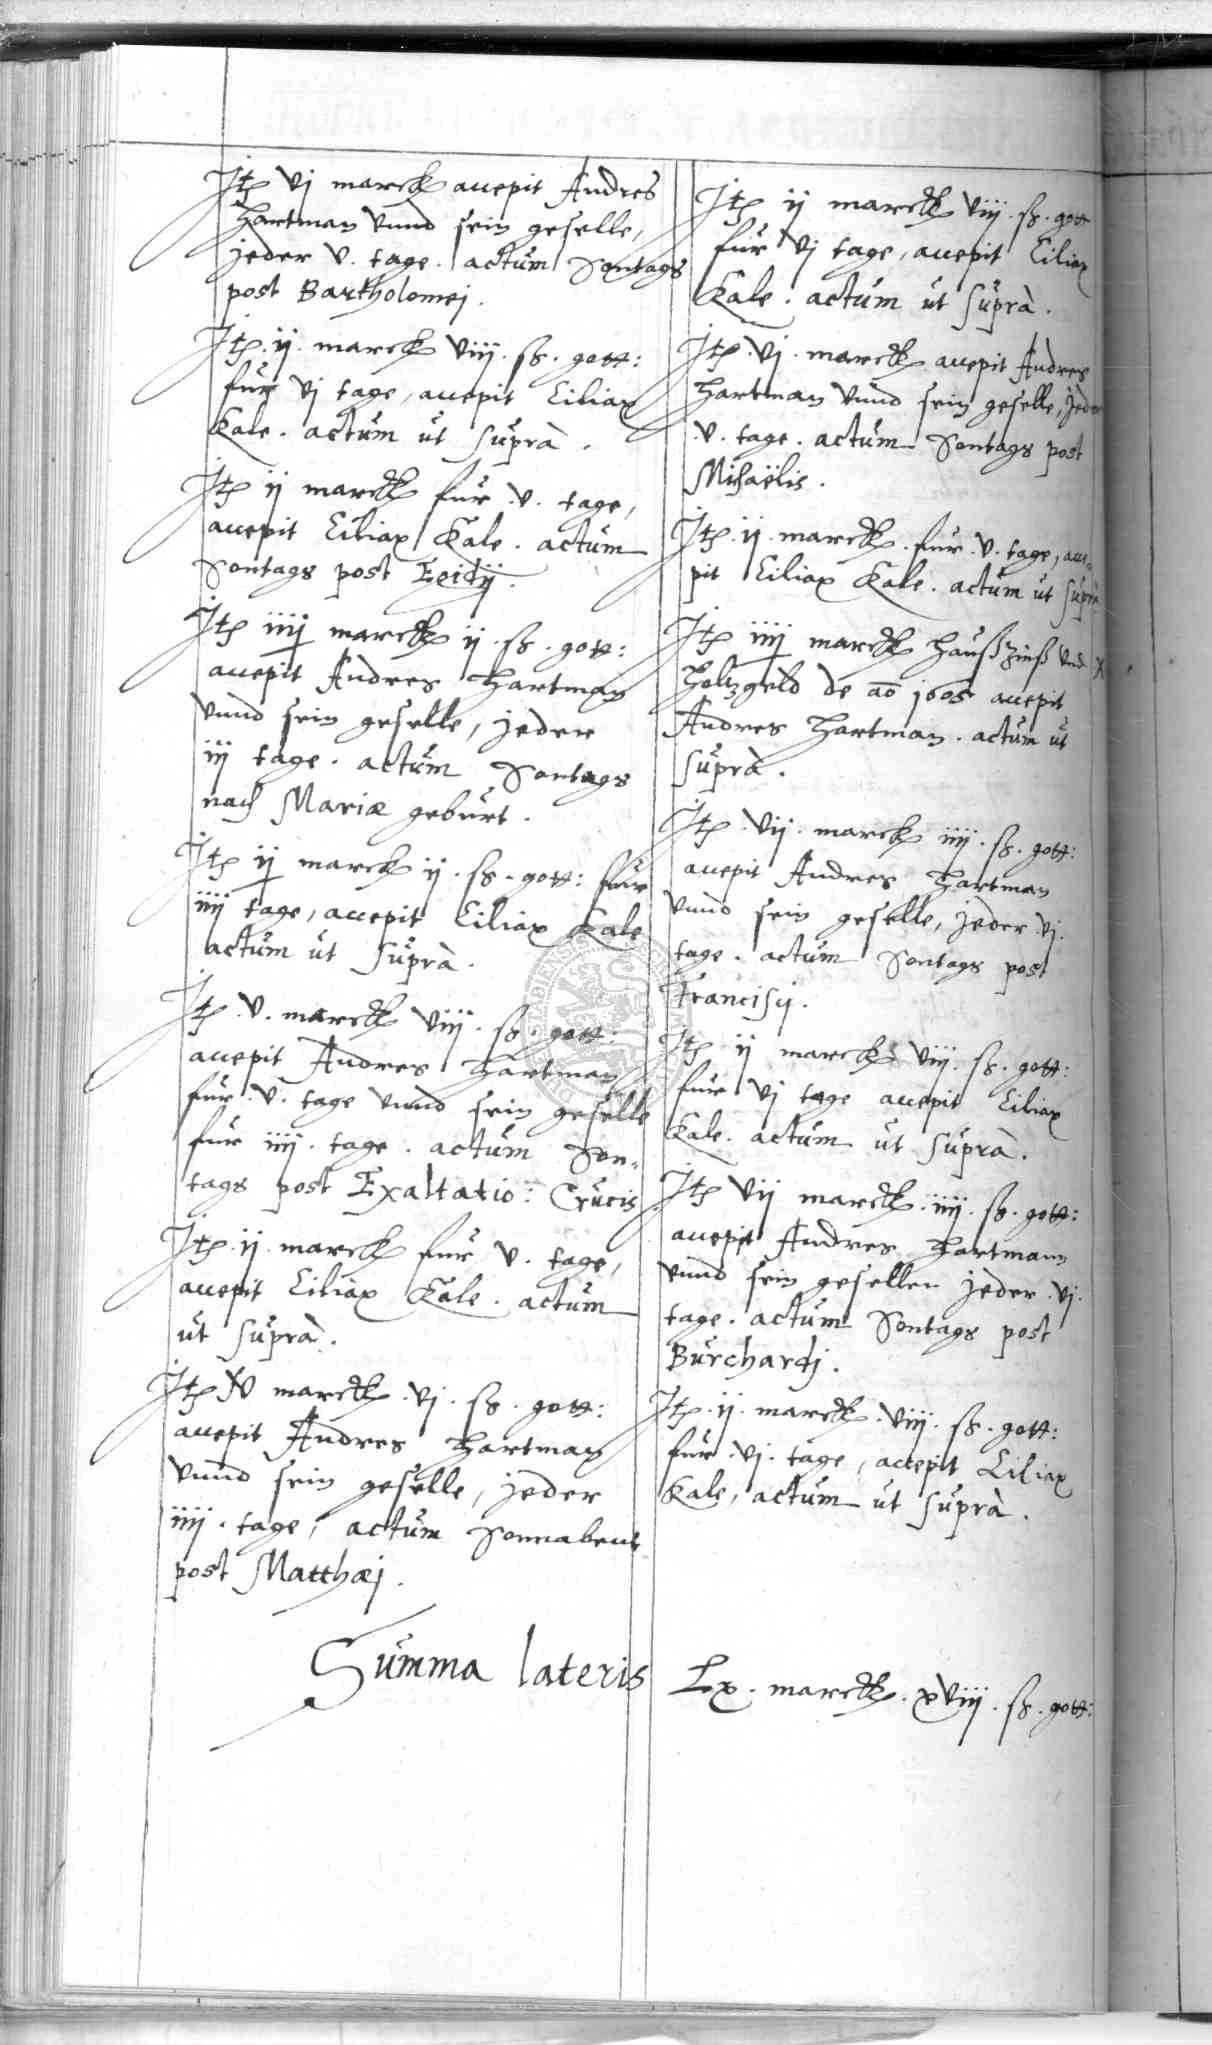 Itē vj marck accepit Andres
Hartman vnnd sein geselle,
jeder v. tage. actum Sontags
post Bartholomej.
Itē. ij. marck viij. ſß. gott:
fur vj tage, accepit Ciliax
Kale. actum ut suprà.
Itē ij marck fur .v. tage,
accepit Ciliax Kale. actum
Sontags post Egidij.
Itē iiij marck ij. ſß. gott:
accepit Andres Hartman
vnnd sein geselle, jeder
iij tage. actum Sontags
nach Mariæ geburt.
Itē ij marck ij. ſß. gott: fur
iiij tage, accepit Ciliax Kale
actum ut suprà.
Itē .v. marck viij. ſß. gott:
accepit Andres Hartman
fur .v. tage vnnd sein geselle
fur iiij. tage. actum Son-
tags post Exaltatio: Crucis
Itē. ij. marck fur v. tage,
accepit Ciliax Kale. actum
ut suprà.
Itē marck .vj. ſß. gott:
accepit Andres Hartman
vnnd sein geselle, jeder
iiij. tage, actum Sonnabens
post Matthæj.
Summa lateris
Itē ij marck viij. ſß. gott
fur vj tage, accepit Ciliax
Kale. actum ut suprà.
Itē .vj. marck accepit Andres
Hartman vnnd sein geselle, jeder
.v. tage. actum Sontags post
Michaëlis.
Itē .ij. marck. fur .v. tage, acce-
pit Ciliax Kale. actum ut suprà
Itē iiij marck haußzinß vnd
holtzgeld de aō 1605 accepit
Andres Hartman. actum ut
suprà.
Itē .vij. marck iiij. ſß. gott:
accepit Andres Hartman
vnnd sein geselle, jeder .vj.
tage. actum Sontags post
Francisci.
Itē ij marck viij. ſß. gott:
fur vj tage accepit Ciliax
Kale. actum ut suprà.
Itē vij marck .iiij. ſß. gott:
accepit Andres Hartmann
vnnd sein gesellen jeder .vj.
tage. actum Sontags post
Burchardj.
Itē .ij. marck .viij. ſß. gott:
fur .vj. tage, accepit Ciliax
Kale, actum ut suprà.
Lx. marck. xviij. ſß. gott: